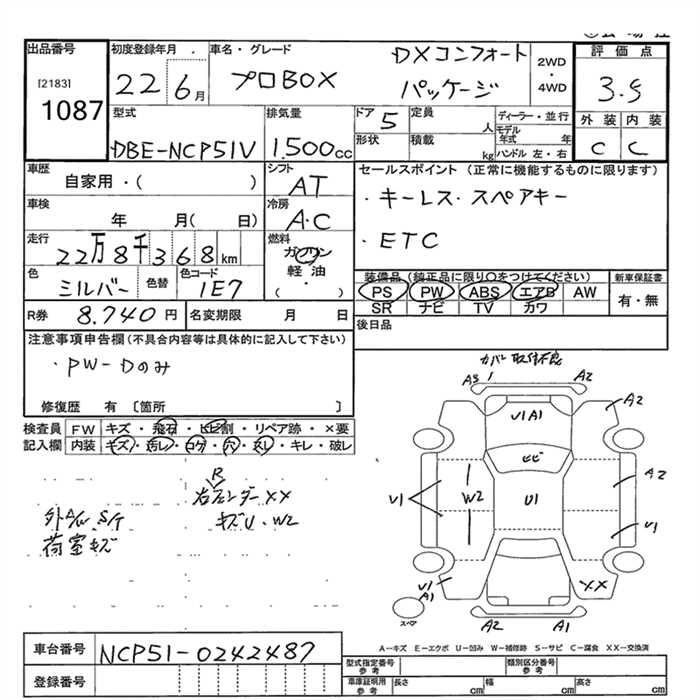 出品番号
[2183]
1087
初度登録年月
22 6月
車名・グレード
プロBOX
DXコンフォート
パッケージ
2WD
・
4WD
評価点
3.5
外装 内装
C C
型式
DBE-NCP51V
排気量
1.500cc
ドア 5
定員
人
ディーラー・並行
モデル年式 年
形状
積載
kg
ハンドル 左・右
車歴
自家用・( )
シフト
AT
車検
年 月( 日)
冷房
A・C
セールスポイント (正常に機能するものに限ります)
・キーレス・スペアキー
・ETC
走行
22万8千368km
燃料
ガソリン
軽油・
( )
色
ミルバー
色替
色コード
1E7
装備品(純正品に限り○をつけてください)
新車保証書
PS PW ABS エアB AW
SR ナビ TV カワ
有・無
R券 8.740円
名変期限 月 日
後日品
注意事項申告欄(不具合内容等は具体的に記入して下さい)
・PW-Dのみ
修復歴 有 〔箇所 〕
検査員
記入欄
FW キズ・飛石・ヒビ割・リペア跡・×要
内装 キズ・汚レ・コゲ・穴・スレ・キレ・破レ
R
XX
キズU・W2
外A/W S/T
荷室キズ
カバー取付不良
A3 1 A2
U1A1
A2
ヒビ
U1
W2
U1
A2
U1
U1
A1
XX
スペア
A2 A1
A-キズ E-エクボ U-凹み W-補修跡 S-サビ C-腐食 XX-交換済
車台番号
NCP51-0242487
登録番号
型式指定番号
参考
類別区分番号
参考
車庫証明用
参考
長さ cm
幅 cm
高さ cm